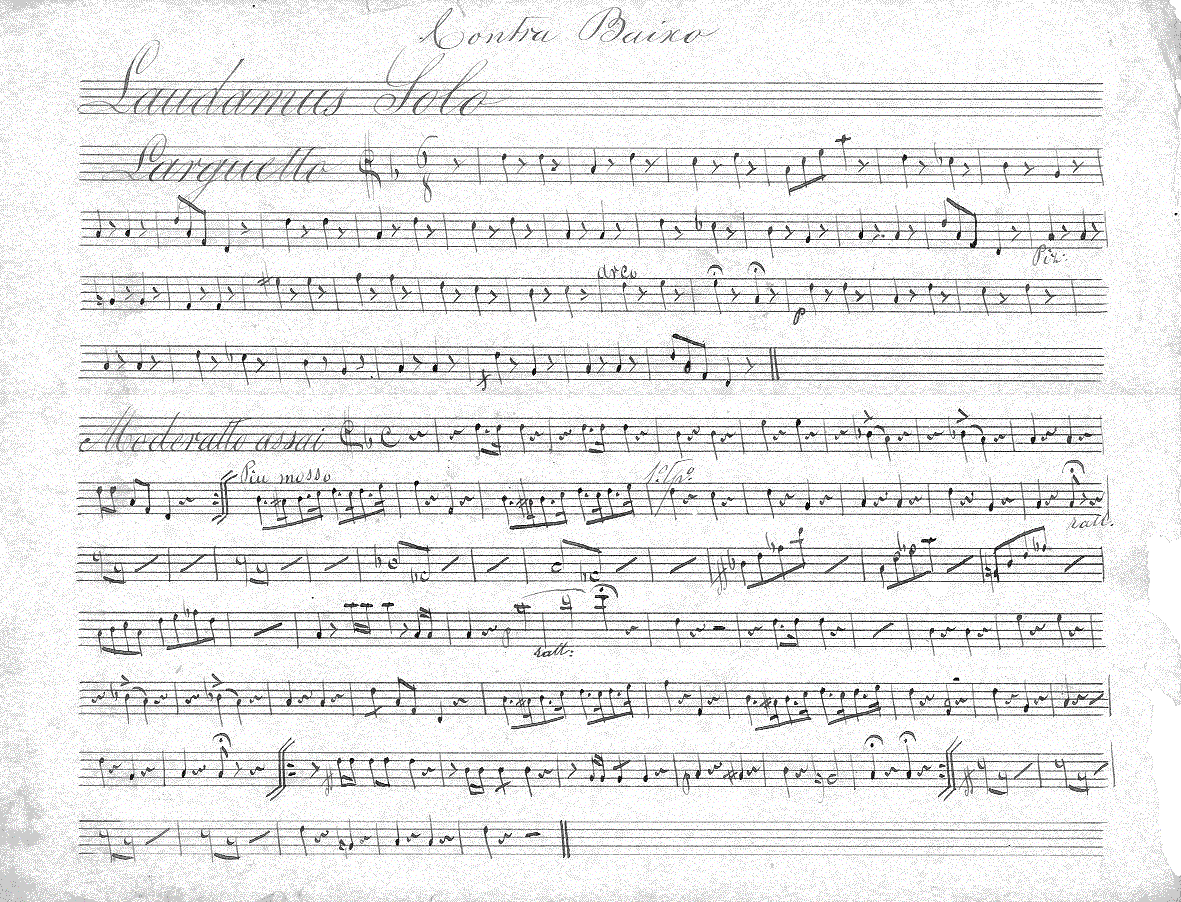 Contra Baixo
Laudamus Solo
Larguetto
Piz:
arco
p
Moderatto assai C
Piu mosso 1º Tpº
rall.
ff
p rall:
ff p ff